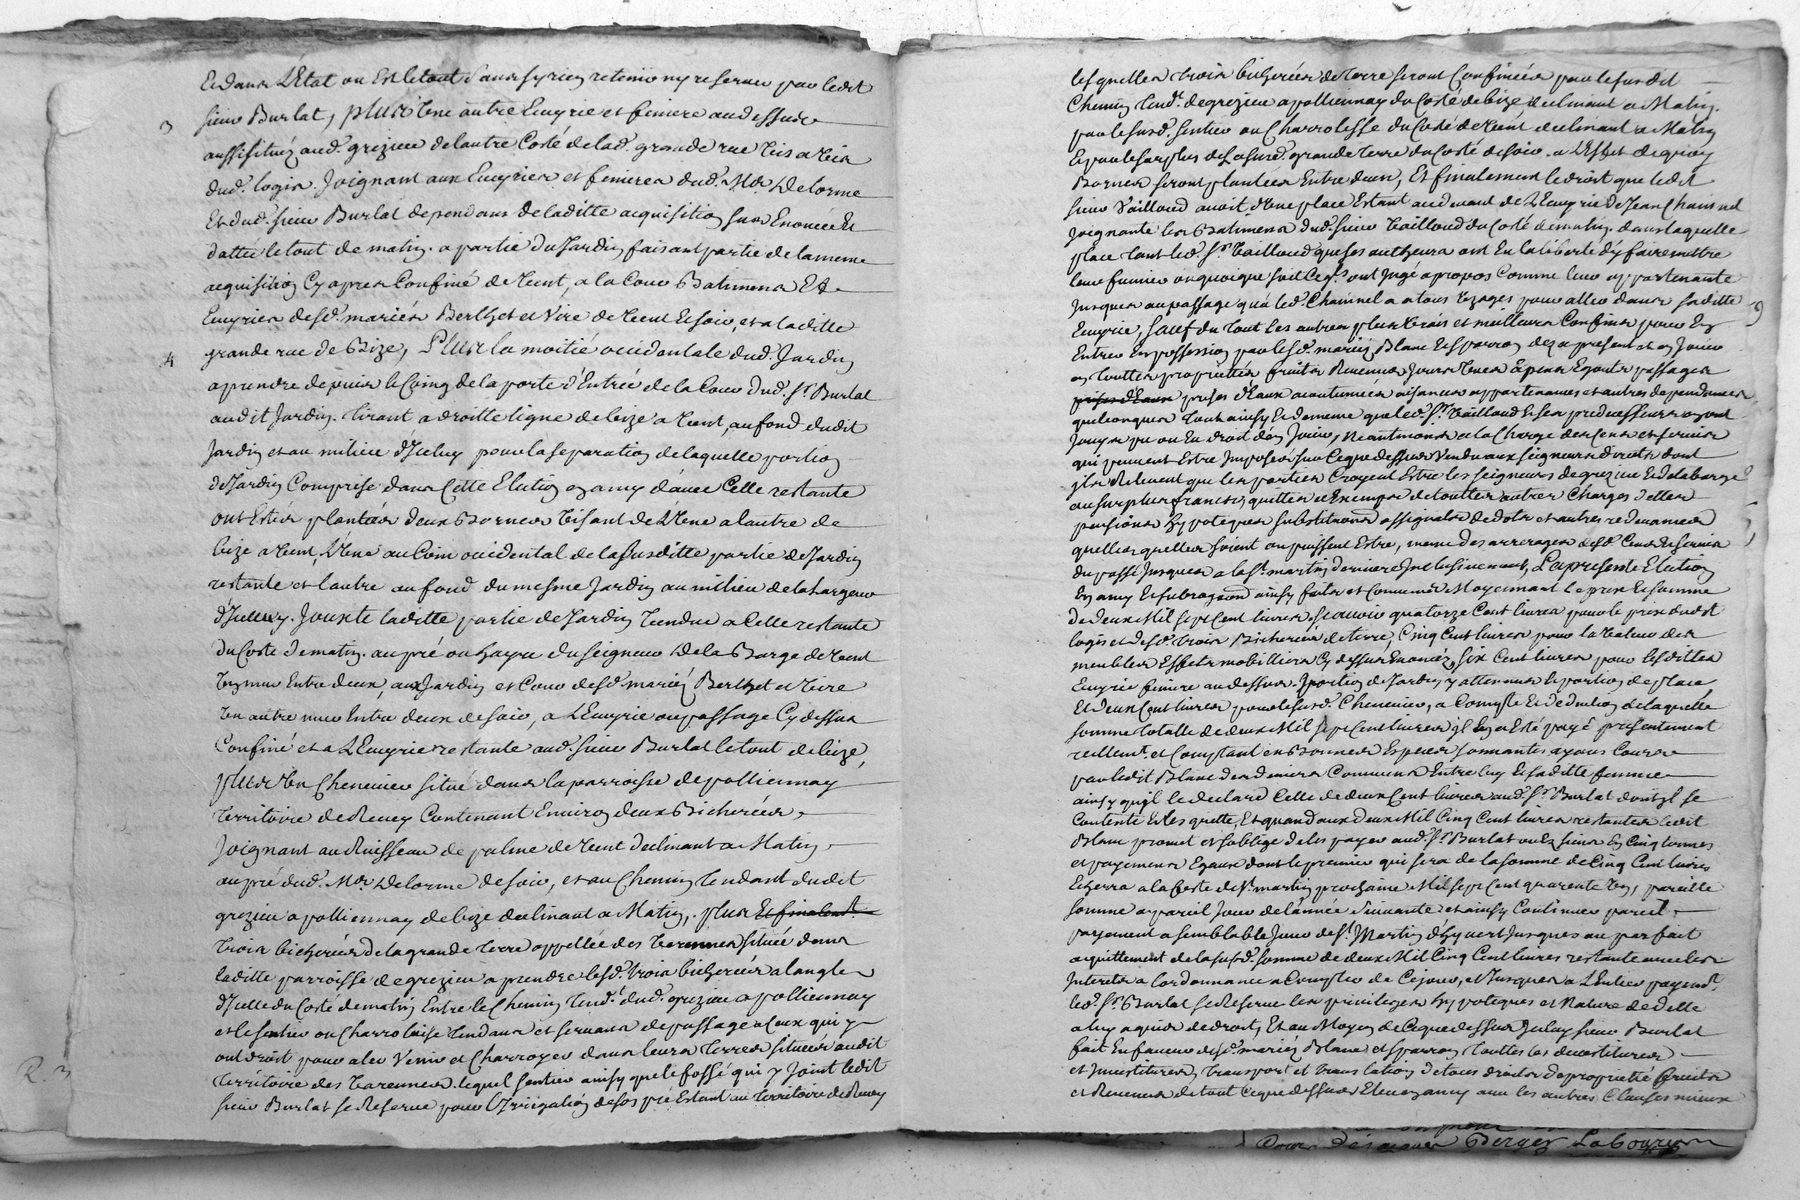 Et dans L'Etat ou Est le tout sans sy rien retenir ny reserver par ledit
sieur Burlat, plus Une autre Ecuyrie et feniere au dessus
3
aussi situéz aud. grezieu de l'autre Costé de lad. grande rue vis a vis
dud. logis. Joignant aux Ecuyries et fenieres dud. Mr Delorme
Et dud. sieur Burlat dependans de laditte acquisition sus Enoncée Et
dattée le tout de matin. a partie du Jardin faisant partie de la meme
acquisition Cy apres Confiné de Vent, a la Cour Batimens Et
Ecuyries desd. mariés Berthet et Vire de Vent Et soir, et a laditte
grande rue de Bize, Plus la moitié occidentale dud. Jardin
4
a prendre depuis le Coing de la porte d'Entrée de la Cour dud. Sr. Burlat
audit Jardin. tirant a droitte ligne de bize a Vent, au fond dudit
Jardin et au milieu d'Iceluy pour la separation de laquelle portion
de Jardin Comprise dans Cette Election en amy d'avec Celle restante
ont Estés plantées deux Bornes visant de L'Une a l'autre de
bize a Vent, L'Une au Coin occidental de la susditte partie de Jardin
restante et l'autre au fond du mesme Jardin au milieu de la Largeur
d'Iceluy. Jouxte laditte partie de Jardin Vendue a Celle restante
du Costé de matin. au pré ou hayve du seigneur De la Barge de Vent
Un mur Entre deux, aux Jardin et Cour desd. mariés Berthet et Vire
Un autre mur Entre deux de soir, a L'Ecuyrie ou passage Cy dessus
Confiné et a L'Ecuyrie restante aud. sieur Burlat le tout de bize,
plus Un Chenevier situé dans la parroisse de pollionnay
territoire de Revey Contenant Environ deux Bicherées
Joignant au Ruisseau de palme de Vent declinant a Matin
au pré dud. Mr. Delorme de soir, et au Chemin Tendant dudit
grezieu a pollionnay de bize declinant a Matin, plus Et finalemt.
trois bicherées de la grande terre appellée des Varennes située dans
laditte parroisse de grezieu a prendre lesd. trois bicherées a l'angle
d'Icelle du Costé de matin Entre le Chemin tendt. dud. grezieu a pollionnay
et le sentier ou Charroloise tendans et servans de passage a Ceux qui y
ont droit pour aler Venir et Charroyer dans leurs terres situées audit
territoire des Varennes. lequel sentier ainsy que le fossé qui y Joint ledit
sieur Burlat se Reserve pour l'Irrigation de son pré Estant au territoire de Revey
lesquelles trois bicherées de terre seront Confinées par le susdit
Chemin tendt. de grezieu a pollionnay du Costé de bize declinant a Matin.
par le susd. sentier ou Charrolesse du Costé de Vent declinant a Matin
Et par le surplus de la susd. grande terre du Costé de soir. a L'Effet de quoy
Bornes seront plantées Entre deux, Et finalement le droit que ledit
sieur Vaillaud avoit d'Une place Estant au devant de L'Ecuyrie de Jean Chainel
Joignante les Batimens dud. sieur Vaillaud du Costé de matin. dans laquelle
place tant led. Sr. Vaillaud que ses autheurs ont Eu la liberté d'y faire mettre
leur fumier ou quoique soit Ce qls. ont Jugé a propos Comme leur appartenante
Jusques au passage qu'a led. Chainel a a tous Usages pour aller dans saditte
9
Ecuyrie, sauf du tout les autres plus vrais et meilleurs Confins pour En
Entrer En possession par lesd. mariés Blanc et sparron dez a present et En Jouir
En touttes proprietés fruits Revenus Jours Vues Espens Egouts passages
prises d'Eaux prises d'Eaux acoutumées aisances appartenances et autres dependances
quelconques tout ainsy Et de meme que led. Sr. Vaillaud Et ses predecesseurs en ont
Jouy pu ou Eu droit d'en Jouir, Neantmoins a la Charge des Cens et servis
qui peuvent Estre Imposés sur Ce que dessus Vendu aux seigneurs directs dont
Ils Relevent que les parties Croyent Estre les seigneurs de grezieu Et de la barge
au surplus francs, quittes et Exempts de touttes autres Charges dettes
pensions hypoteques substitutions assignats de dots et autres redevances
quelles quelles soient ou puissent Estre, meme des arrerages desd. Cens Et servis
du passé Jusques a la St. martin derniere Inclusivement, La presente Election
En amy Et subrogaon. ainsy faites et Convenues Moyennant le prix Et somme
de deux Mil sept Cent livres. scavoir quatorze Cent livres pour le prix dudit
logis et desd. trois Bicherées de terre, Cinq Cent livres pour la Valeur des
meubles Effets mobilliers Cy dessus Enoncés, six Cent livres pour lesdittes
Ecuyrie feniere au dessus. portion de Jardin y attenues Et portion de place
Et deux Cent livres pour le susd. Chenevier, a Compte Et deduction de laquelle
somme totalle de deux Mil sept Cent livres il En a Esté payé presentement
reellemt. et Comptant en Bonnes Especes sonnantes ayans Cours
par ledit Blanc des deniers Communs Entre luy Et saditte femme
ainsy qu'il le declare Celle de deux Cent livres aud. Sr. Burlat dont il se
Contente Et les quitte, Et quand aux deux Mil Cinq Cent livres restantes ledit
Blanc promet et s'oblige de les payer aud. Sr. Burlat ou les siens En Cinq termes
et payements Egaux dont le premier qui sera de la somme de Cinq Cent livres
Echerra a la feste de St. martin prochaine Mil sept Cent quarente Un, pareille
somme a pareil Jour de l'année suivante et ainsy Continuer pareil
payement a semblable Jour de St. Martin d'hyvert Jusques au parfait
acquittement de la susd. somme de deux Mil Cinq Cent livres restante avec les
Interets a l'ordonnance a Compter de Ce jour, et Jusques a L'Entier payemt.
led. Sr. Burlat se Reserve les privileges hypoteques et Nature de dette
a luy aquis de droit, Et au Moyen de Ce que dessus Iceluy sieur Burlat
fait En faveur desd. mariés Blanc et sparron touttes les devestitures
et Investitures, transport et translation de tous droits de proprieté fruits
et Revenus de tout Ce que dessus Eleu en amy avec les autres Clauses mieux
Berger Labourion
R. 3